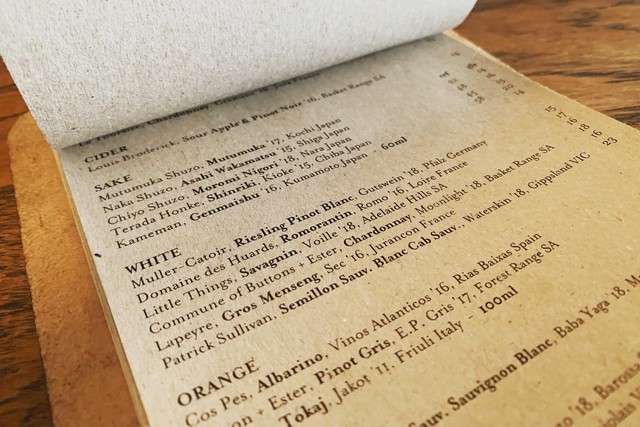 Chardonnay,
CIDER
Louis Broderick, Sour Apple & Pinot Noir '16, Basket Range SA
SAKE
Mutumuka Shuzo, Mutumuka '17, Kochi Japan
Naka Shuzo, Asahi Wakamatsu '15, Shiga Japan
Chiyo Shuzo, Moromi Nigori '18, Nara Japan
Terada Honke, Shinriki, Kioke '15, Chiba Japan
Kameman, Genmaishu '16, Kumamoto Japan - 60ml
WHITE
Muller-Catoir, Riesling Pinot Blanc, Gutswein '18, Pfalz Germany 15
Domaine des Huards, Romorantin, Romo '16, Loire France 17
Little Things, Savagnin, Voille '18, Adelaide Hills SA 16
Commune of Buttons + Ester, Chardonnay, Moonlight '18, Basket Range SA 18
Lapeyre, Gros Menseng, Sec '16, Jurancon France 16
Patrick Sullivan, Semillon Sauv. Blanc Cab Sauv., Waterskin '18, Gippsland VIC 23
ORANGE
Cos Pes, Albarino, Vinos Atlanticos '16, Rias Baixas Spain
on + Ester, Pinot Gris, E.P. Gris '17, Forest Range SA
Tókaj, Jakot '11, Friuli Italy - 100ml
Sauv. Sauvignon Blanc, Baba Yaga '18,
'18, Barossa